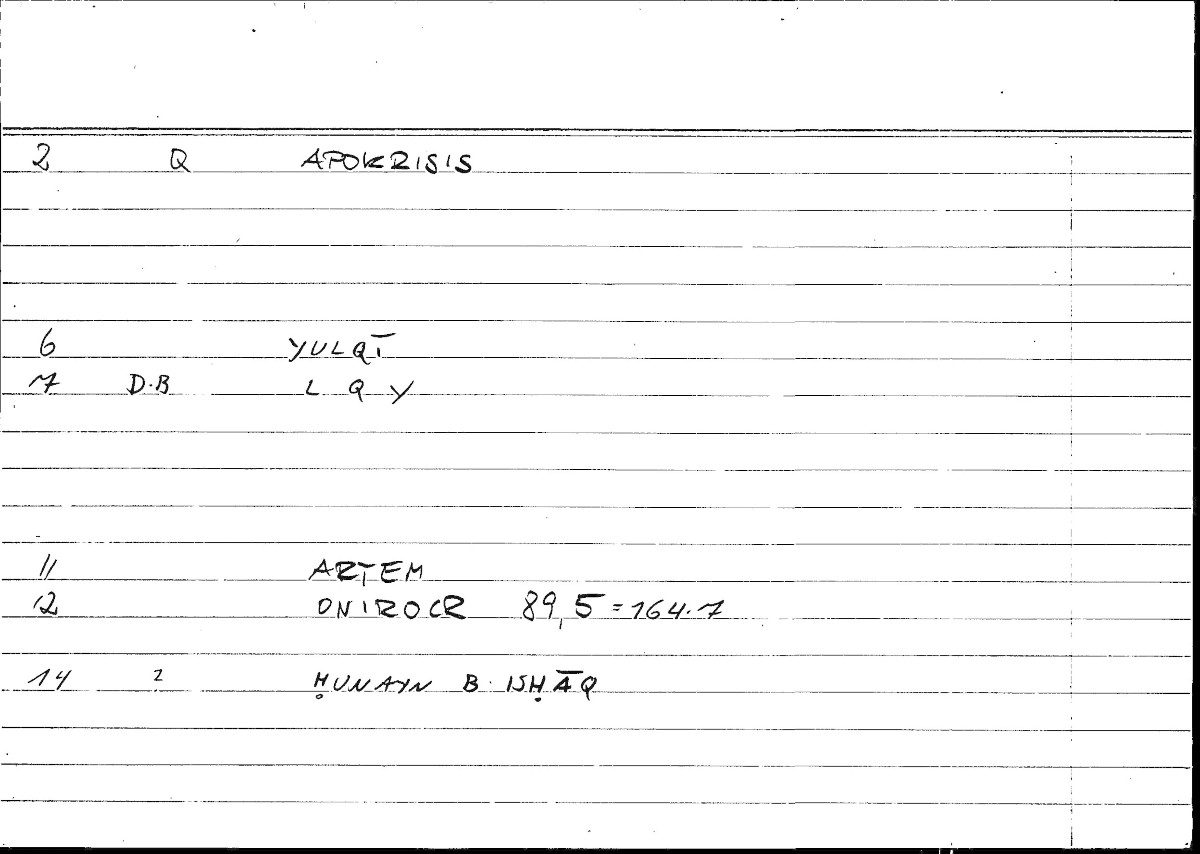 2 Q APOKRISIS
6 YULQĪ
7 D.B L Q Y
11 ARTEM
12 ONIROCR 89,5=164.7
14 2 ḤUNAYN B. ISḤĀQ